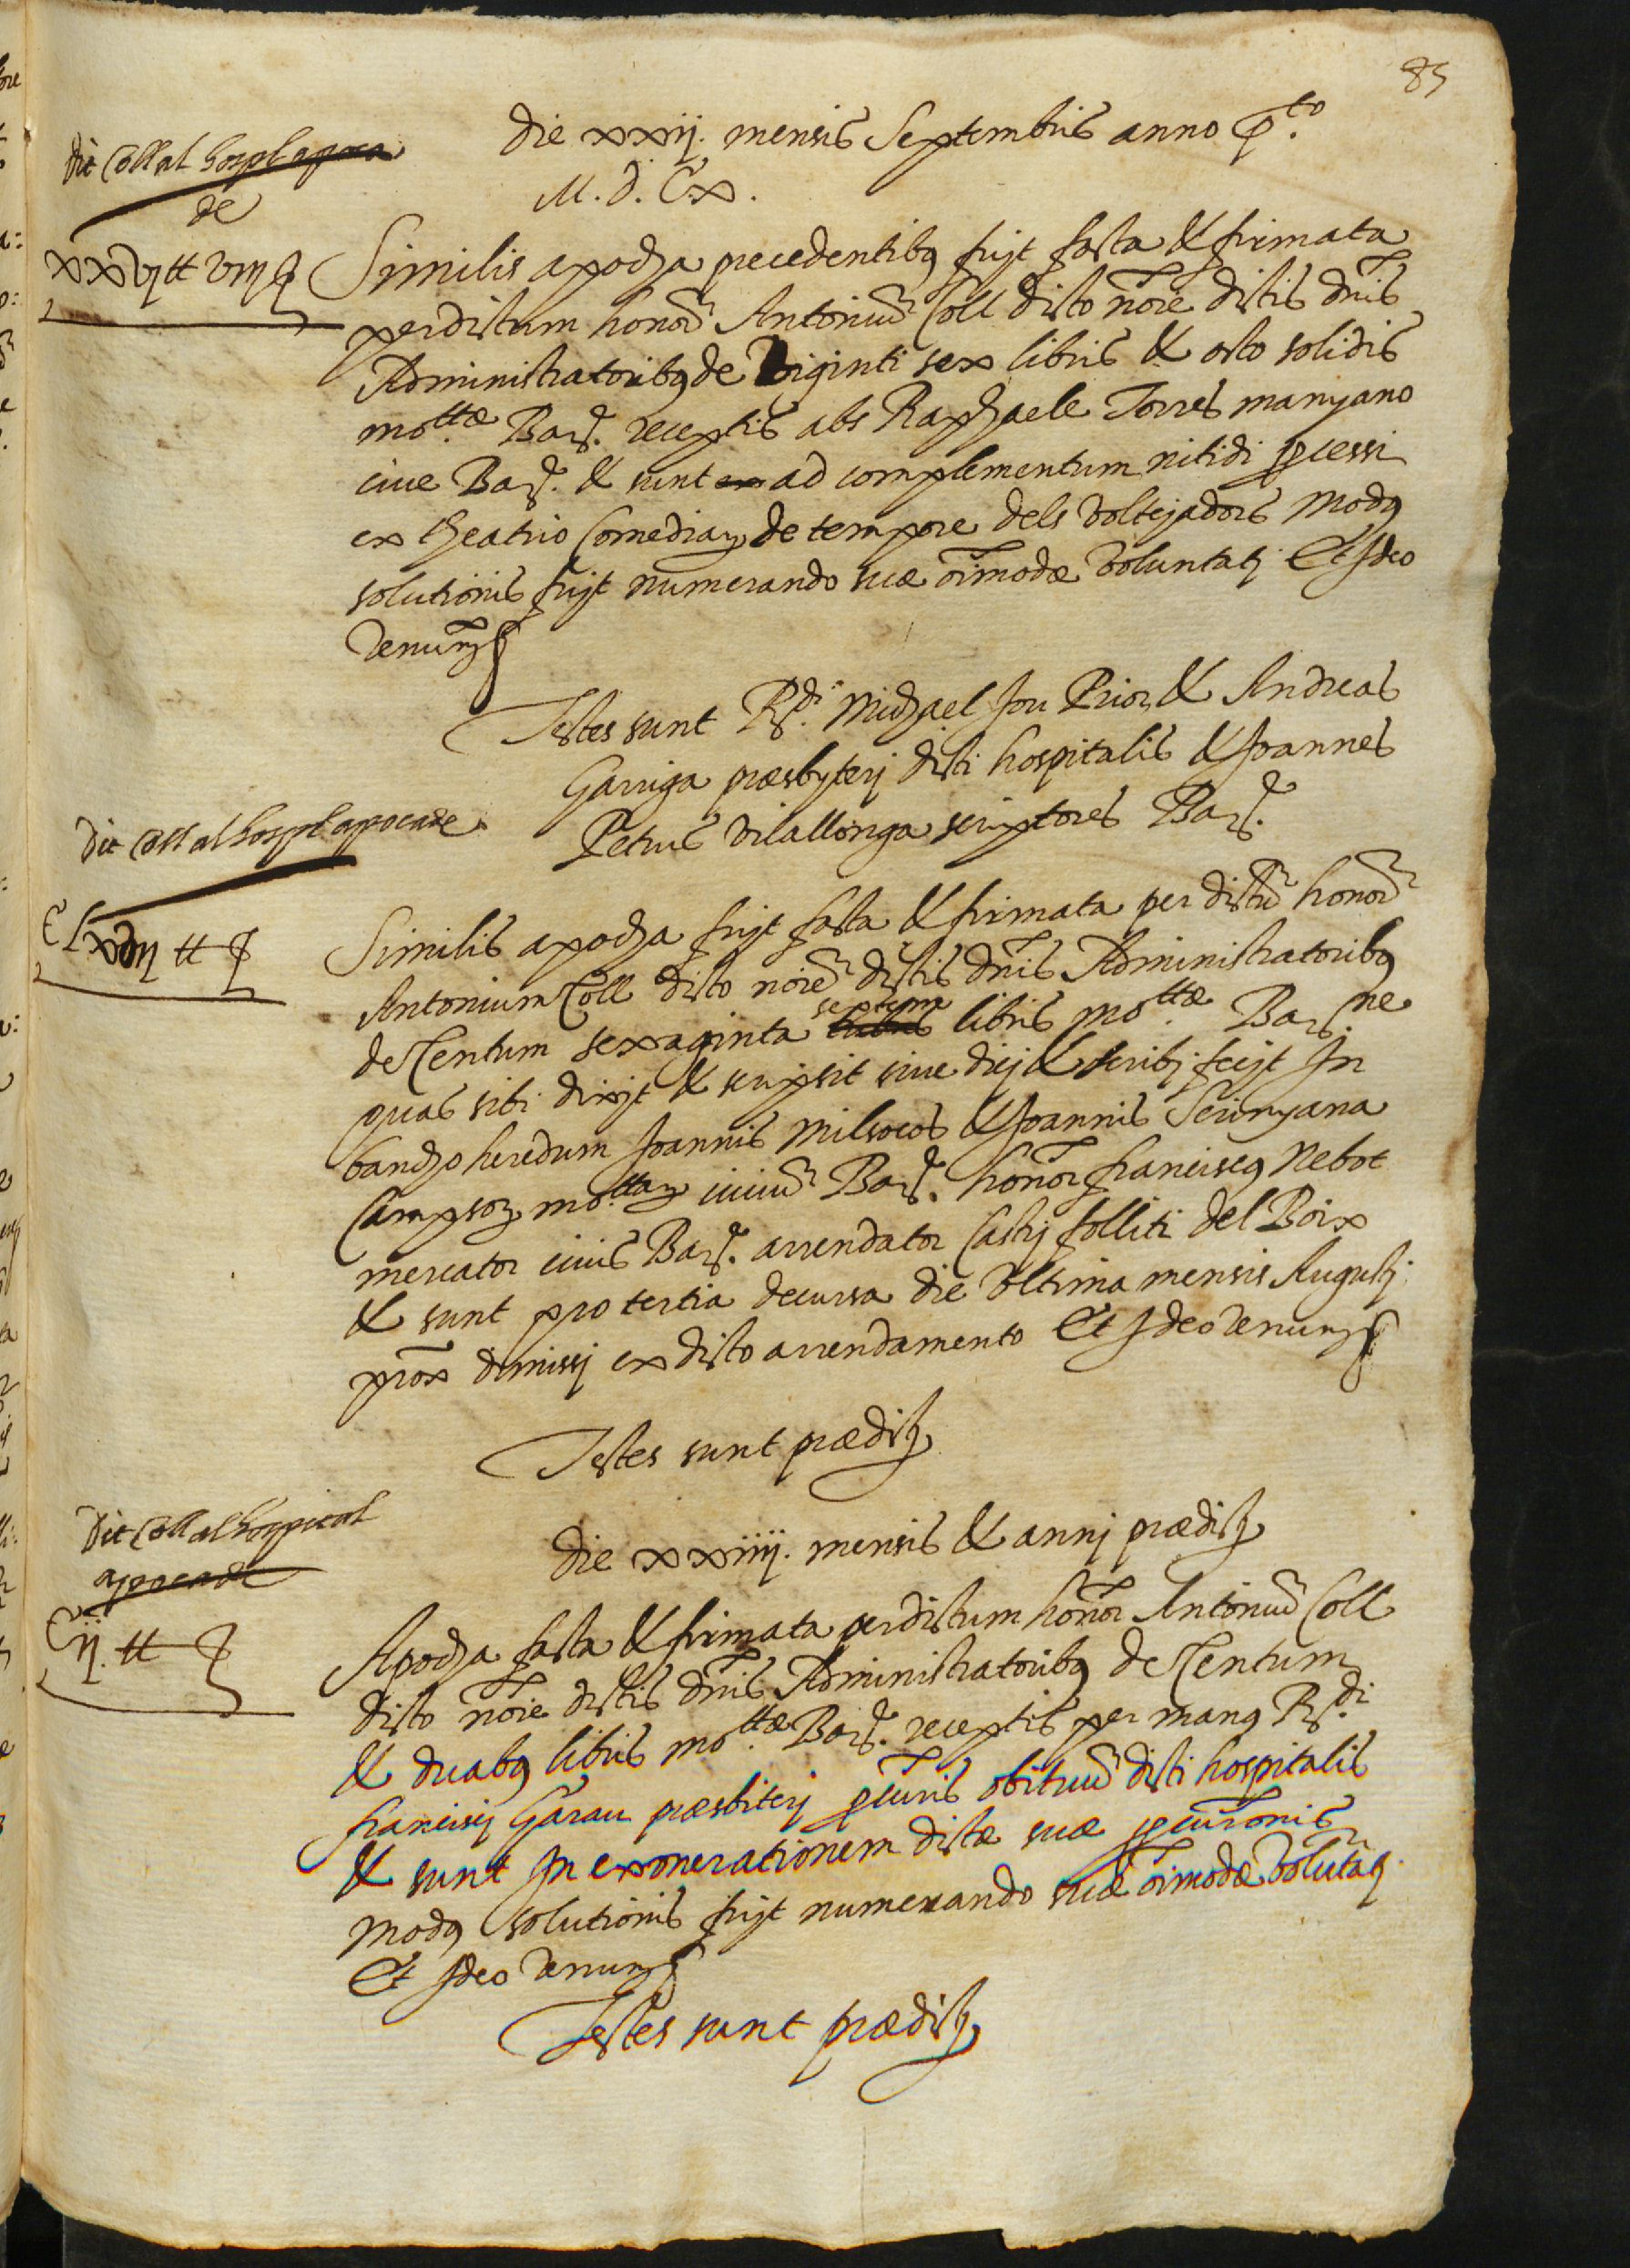 85
Die xxij. mensis Septembris anno p.to
M. D. C.x.
Dit Coll al hospl apoca
de
xxvj ll viij s
Similis apocha precedentibus fuit facta & firmata
per dictum honor Antoniu Coll dicto noie dictis dnis
Administratoribus de Viginti sex libris & octo solidis
mo.tæ Bar. receptis abs Raphaele Torres manyano
cive Bar. & sunt ad complementum nitidi pcessi
ex theatrio Comediaru de tempore dels Voltejadors Modus
solutionis fuit numerando suæ oimodæ Voluntati Et Ideo
Renun
Testes sunt R.di Michael Jou Prior & Andreas
Garriga præsbyteri dicti hospitalis & Joannes
Petrus Vilallonga scriptores Bar.
Dit Coll al hospl apoca de
CLxvij ll s
Similis apocha fuit facta & firmata per dictu honor
Antonium Coll dicto noie dictis dnis Administratoribus
de Centum sexaginta septem libris mo.tæ Bar.ne
quas sibi dixit & scripsit sive dici & scribi fecit In
bancho heredum Joannis Milsocos & Joannis Serinyana
Campsor mo.tar civiu Bar. honor franciscus Nebot
mercator civis Bar. arrendator Castri folliti del Boix
& sunt pro tertia decursa die Vltima mensis Augusti
prox dimissi ex dicto arrendamento Et Ideo Renun
Testes sunt prædicti
Dit Coll al hospital
apoca de
Cij. ll s
Die xxiiij. mensis & anni prædicti
Apocha facta & firmata per dictum honor Antoniu Coll
dicto noie dictis dnis Administratoribus de Centum
& duabus libris mo.tæ Bar. receptis per manus R.di
francisci Garau præsbiteri pcuris obituu dicti hospitalis
& sunt In exonerationem dictæ suæ pcuronis
Modus solutionis fuit numerando suæ oimodæ Volutati
Et Ideo Renun
Testes sunt prædicti